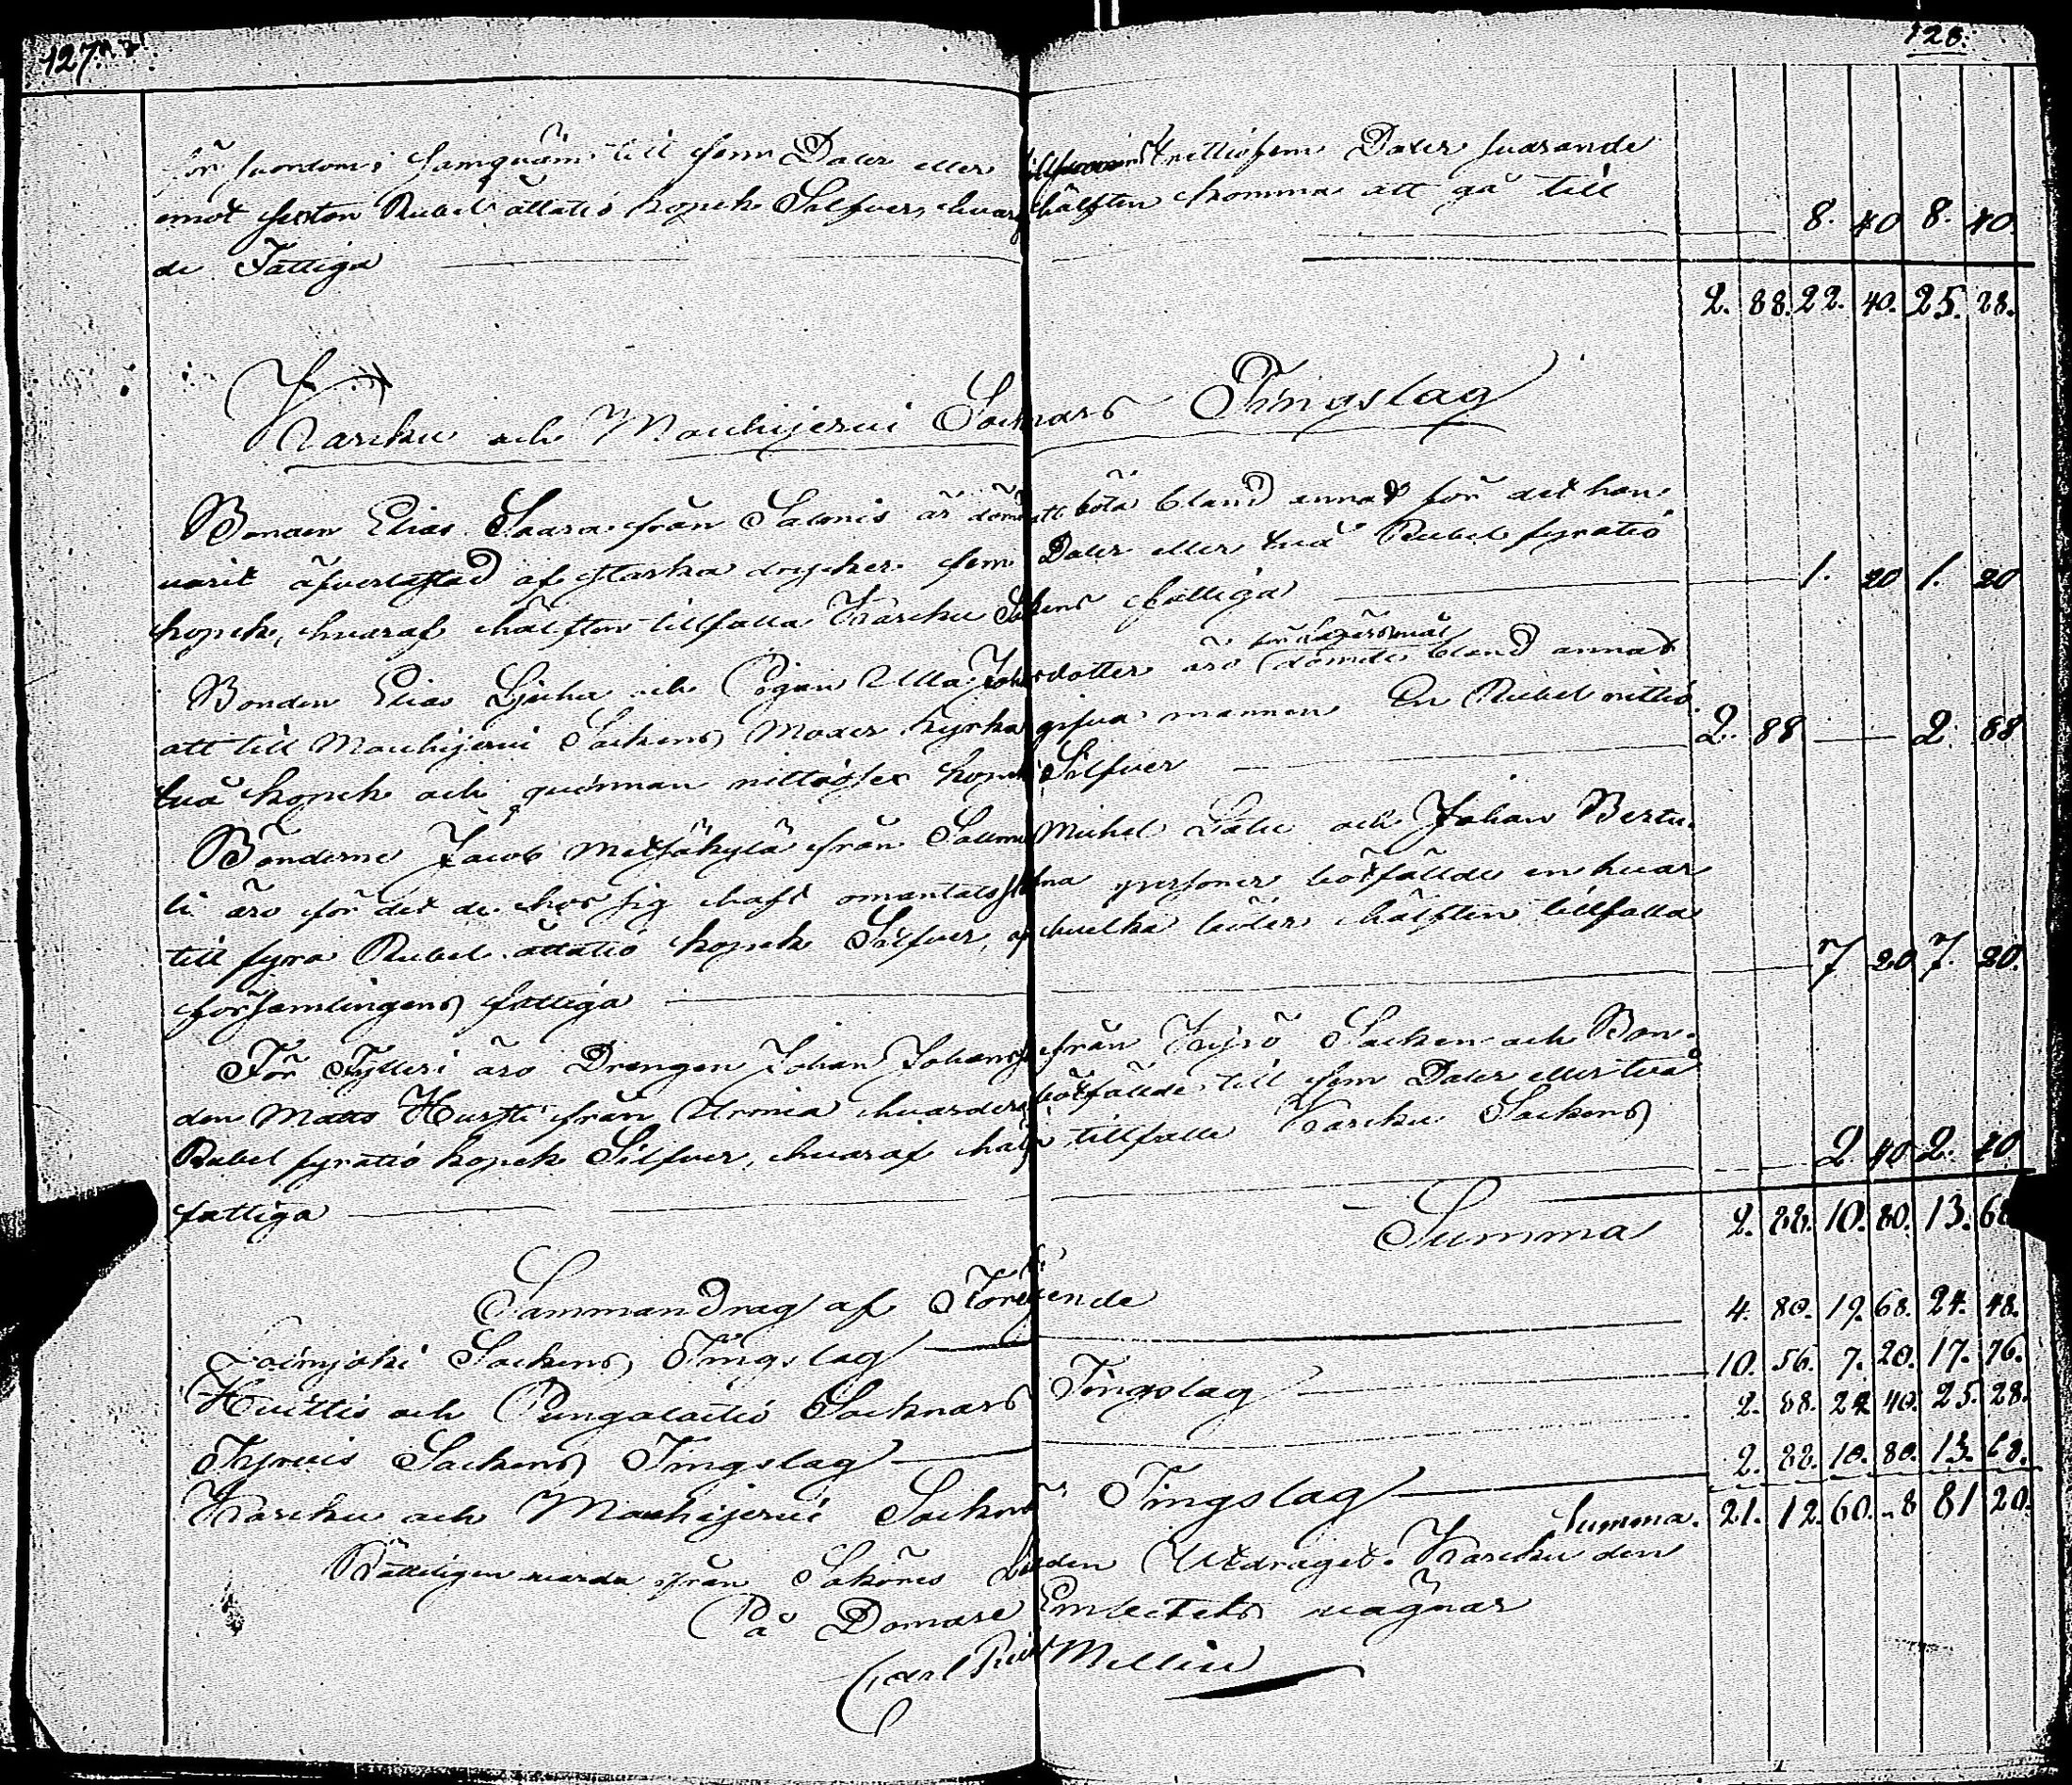 127. 128.
för svordom; samqväm till fem Daler eller trettiofem Daler svarande
emot sexton Rubel åttatio kopek Silfver, hvaraf hälften komma att gå till
de Fattiga 8. 40 8. 40.
2. 88. 22. 40. 25. 28.
Karcku och Mouhijervi Socknars Tingslag
Bonden Elias Saara från Salmis är dömd att böta bland annat för det han
varit öfverlastad af starka drycker fem Daler eller två Rubel fyratio
kopek, hvaraf hälften tillfalla Karcku Sokens fattiga 1. 20 1. 20
för lägersmål
Bonden Elias och Pigan Ulla Johansdotter äro dömde bland annat
att till Mouhijervi Sockens Moder kyrka gifva mannen En Rubel nittio
två kopek och qvinnan nittiosex kopek Silfver 2. 88 2. 88
Bönderne Jacob Metsäkylä från Salmi Michel Lalu och Johan Bertu-
li äro för det de hos sig haft omantalsskrifna personer bötfällde en hvar
till fyra Rubel åttatio kopek Silfver, af hvilka böter hälften tillfalla
församlingens fattiga 7 20 7. 20.
För Fylleri äro Drengen Johan Johansson från Kyrö Socken och Bon-
den Matts Hursti från Uronia hvardera bötfällde till fem Daler eller två
Rubel fyratio kopek Silfver, hvaraf half tillfalle Karcku Sockens
fattiga 2 40. 2. 40
Summa 2. 88. 10. 80. 13. 68
Sammandrag af Föregående
Loimjoki Sockens Tingslag 4. 80. 19. 68. 24. 48.
Huittis och Pungalaitio Socknars Tingslag 10. 56. 7. 20. 17. 76.
Tyrvis Sockens Tingslag 2. 88. 22 40. 25. 28.
Karcku och Mouhijervi Socknars Tingslag 2. 88. 10. 80. 13. 68.
Summa. 21. 12. 60. 8 81 20.
Rätteligen vara från Saköres Längden Utdraget. Karcku den
På Domare Embetets vägnar
Carl Mellin